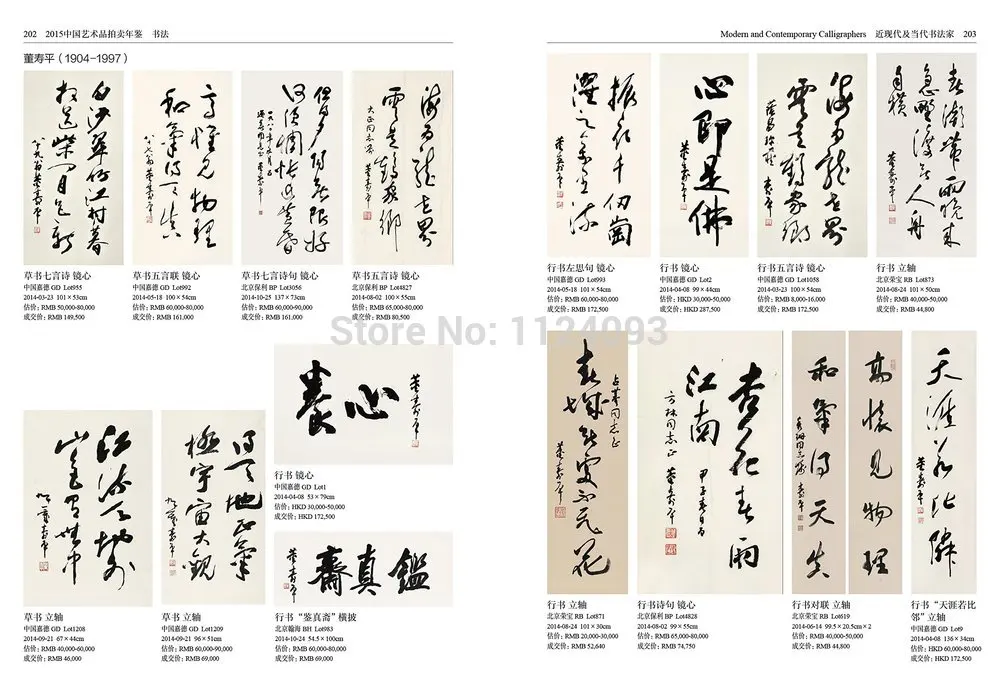 202 2015中国艺术品拍卖年鉴 书法
董寿平（1904-1997）
白沙翠竹江村暮
相送柴门月色新
高懷見物理
和氣得天真
海为龍世界
雲是鶴家鄉
草书七言诗 镜心
中国嘉德 GD Lot955
2014-03-23 101×53cm
估价: RMB 50,000-80,000
成交价: RMB 149,500
草书五言联 镜心
中国嘉德 GD Lot992
2014-05-18 100×54cm
估价: RMB 60,000-80,000
成交价: RMB 161,000
草书七言诗句 镜心
北京保利 BP Lot3056
2014-10-25 137×73cm
估价: RMB 60,000-90,000
成交价: RMB 161,000
草书五言诗 镜心
北京保利 BP Lot4827
2014-08-02 100×55cm
估价: RMB 65,000-80,000
成交价: RMB 80,500
江流天地外
山色有無中
得天地正氣
極宇宙大觀
養心
行书 镜心
中国嘉德 GD Lot1
2014-04-08 53×79cm
估价: HKD 30,000-50,000
成交价: HKD 172,500
鑑真齋
草书 立轴
中国嘉德 GD Lot1208
2014-09-21 67×44cm
估价: RMB 40,000-60,000
成交价: RMB 46,000
草书 立轴
中国嘉德 GD Lot1209
2014-09-21 96×51cm
估价: RMB 60,000-90,000
成交价: RMB 69,000
行书“鉴真斋”横披
北京翰海 BH Lot983
2014-10-24 54.5×100cm
估价: RMB 60,000-80,000
成交价: RMB 69,000
Modern and Contemporary Calligraphers 近现代及当代书法家 203
振衣千仞崗
心即是佛
海为龍世界
雲是鶴家鄉
春潮帶雨晚来
急野渡無人舟
自横
行书左思句 镜心
中国嘉德 GD Lot993
2014-05-18 101×54cm
估价: RMB 60,000-80,000
成交价: RMB 172,500
行书 镜心
中国嘉德 GD Lot2
2014-04-08 99×44cm
估价: HKD 30,000-50,000
成交价: HKD 287,500
行书五言诗 镜心
中国嘉德 GD Lot1058
2014-03-23 100×50cm
估价: RMB 8,000-16,000
成交价: RMB 172,500
行书 立轴
北京荣宝 RB Lot873
2014-08-24 101×50cm
估价: RMB 40,000-50,000
成交价: RMB 44,800
Store No: 1124093
春城無處不飛花
杏花春雨
江南
高懷見物理
和氣得天真
天涯若比隣
行书 立轴
北京荣宝 RB Lot871
2014-08-24 101×30cm
估价: RMB 20,000-30,000
成交价: RMB 52,640
行书诗句 镜心
北京保利 BP Lot4828
2014-08-02 99×55cm
估价: RMB 65,000-80,000
成交价: RMB 74,750
行书对联 立轴
北京荣宝 RB Lot619
2014-06-14 99.5×20.5cm×2
估价: RMB 40,000-50,000
成交价: RMB 44,800
行书“天涯若比
邻”立轴
中国嘉德 GD Lot9
2014-04-08 136×34cm
估价: HKD 60,000-80,000
成交价: HKD 172,500